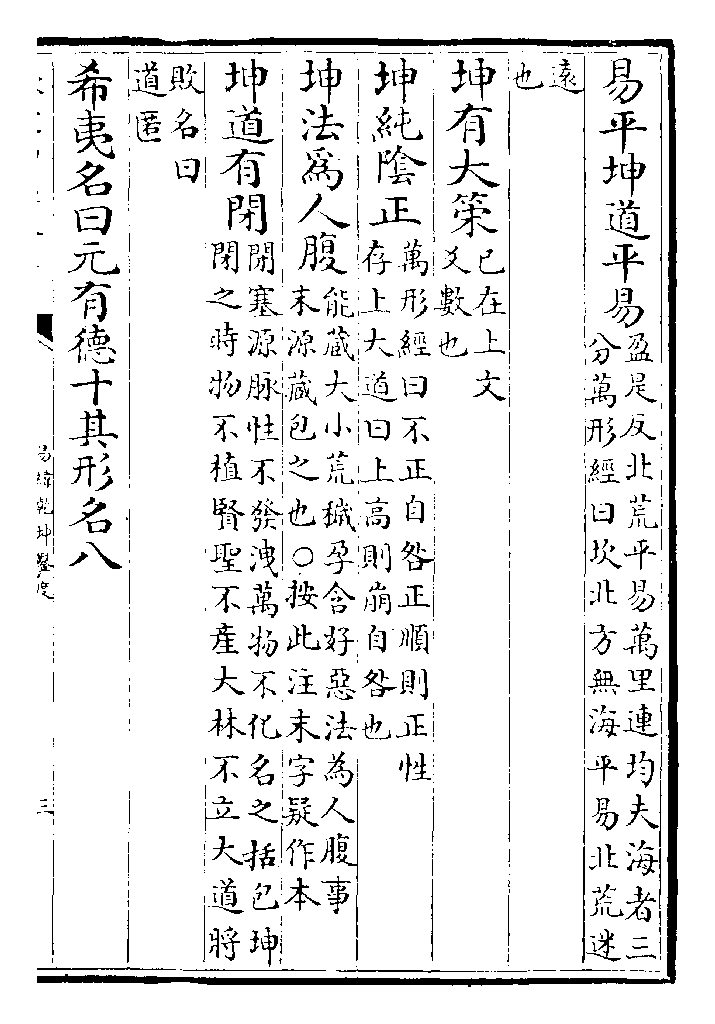 易平坤道平易盈是反北荒平易萬里連均夫海者三
分萬形經曰坎北方無海平易北荒迷
遠
也
坤有大策已在上文
爻數也
坤純陰正萬形經曰不正自咎正順則正性
存上大道曰上高則崩自咎也
坤法爲人腹能藏大小荒穢孕含好惡法為人腹事
末源藏包之也○按此注末字疑作本
坤道有閉閉塞源脉性不發洩萬物不化名之括包坤
閉之時物不植賢聖不產大林不立大道將
敗名曰
道匿
希夷名曰元有德十其形名八
易緯乾坤鑿度
三